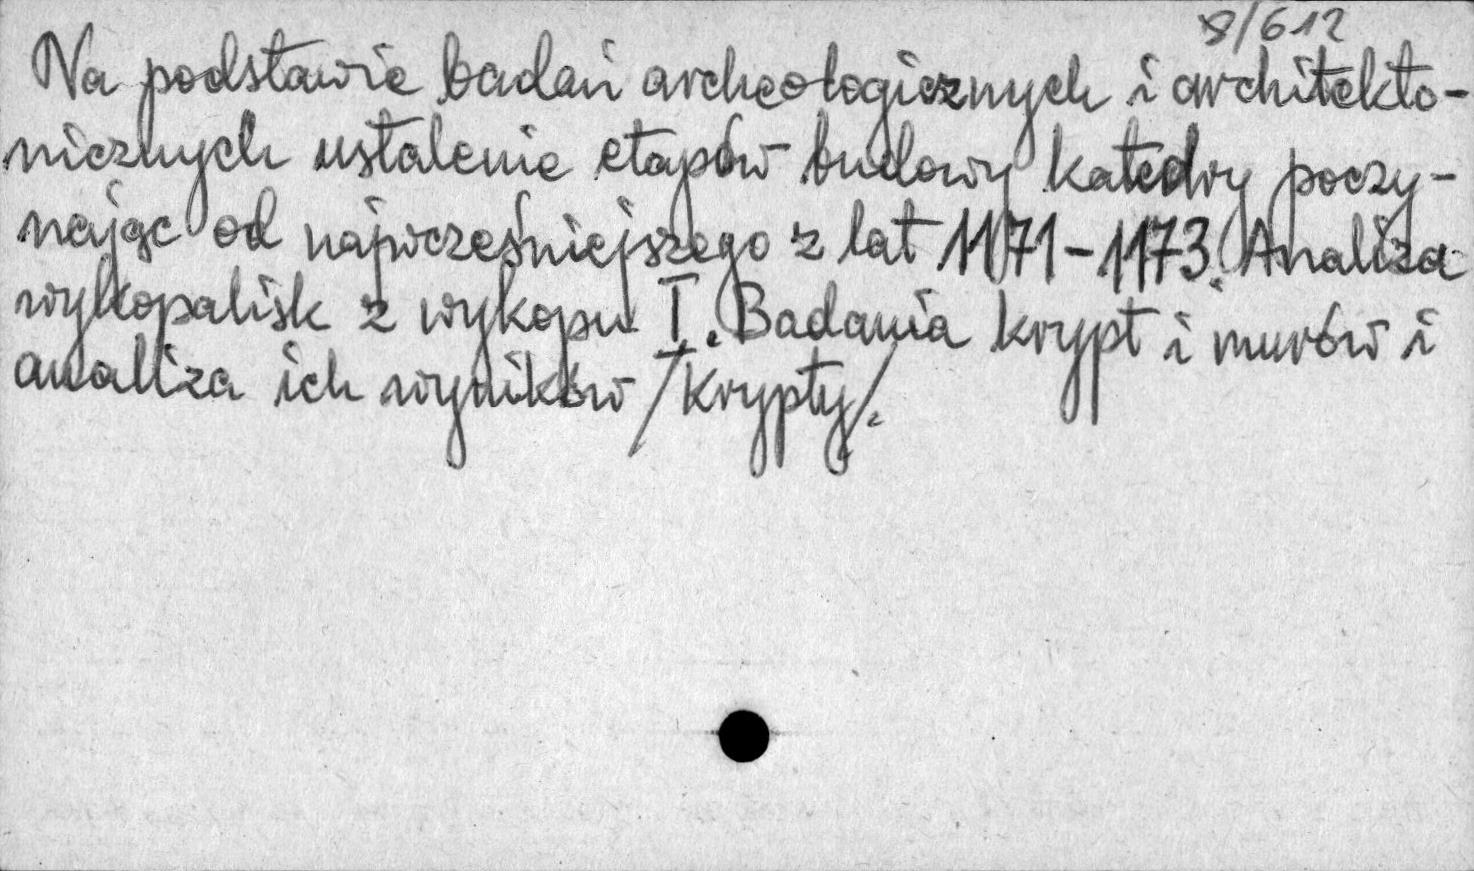 8/612
Na podstawie badań archeologicznych i architekto-
nicznych ustalenie etapów budowy katedry poczy-
nając od najwcześniejszego z lat 1171-1173. Analiza
wykopalisk z wykopu I. Badania krypt i murów i
analiza ich wyników /Krypty/.